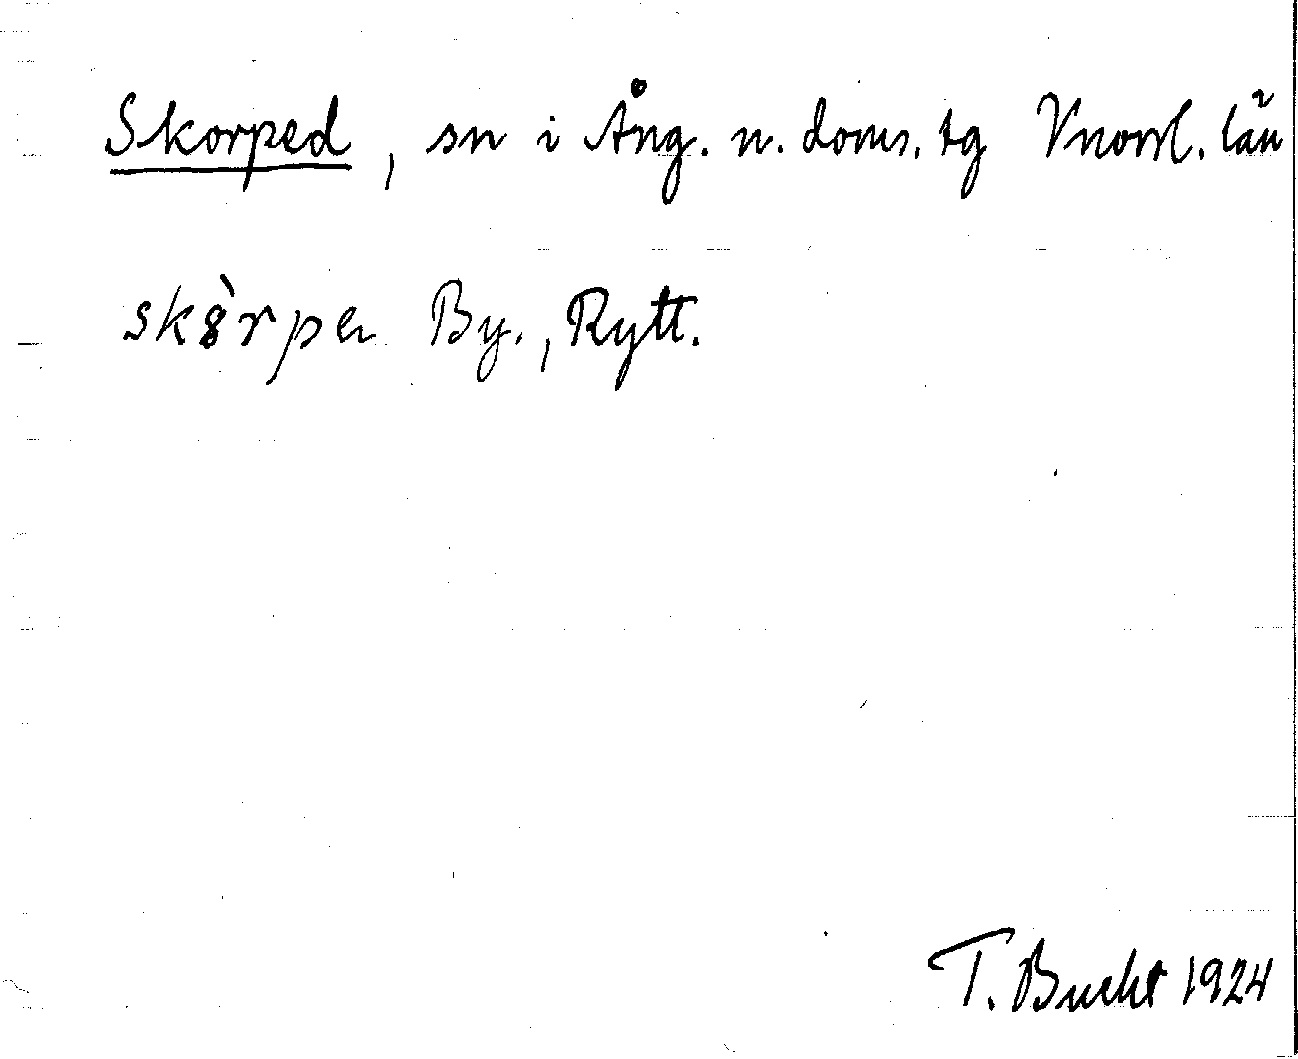 Skorped, sn i Ång. n. doms. tg Vnorrl. län
skȣ̀rpa By., Rytt.
T. Bucht 1924